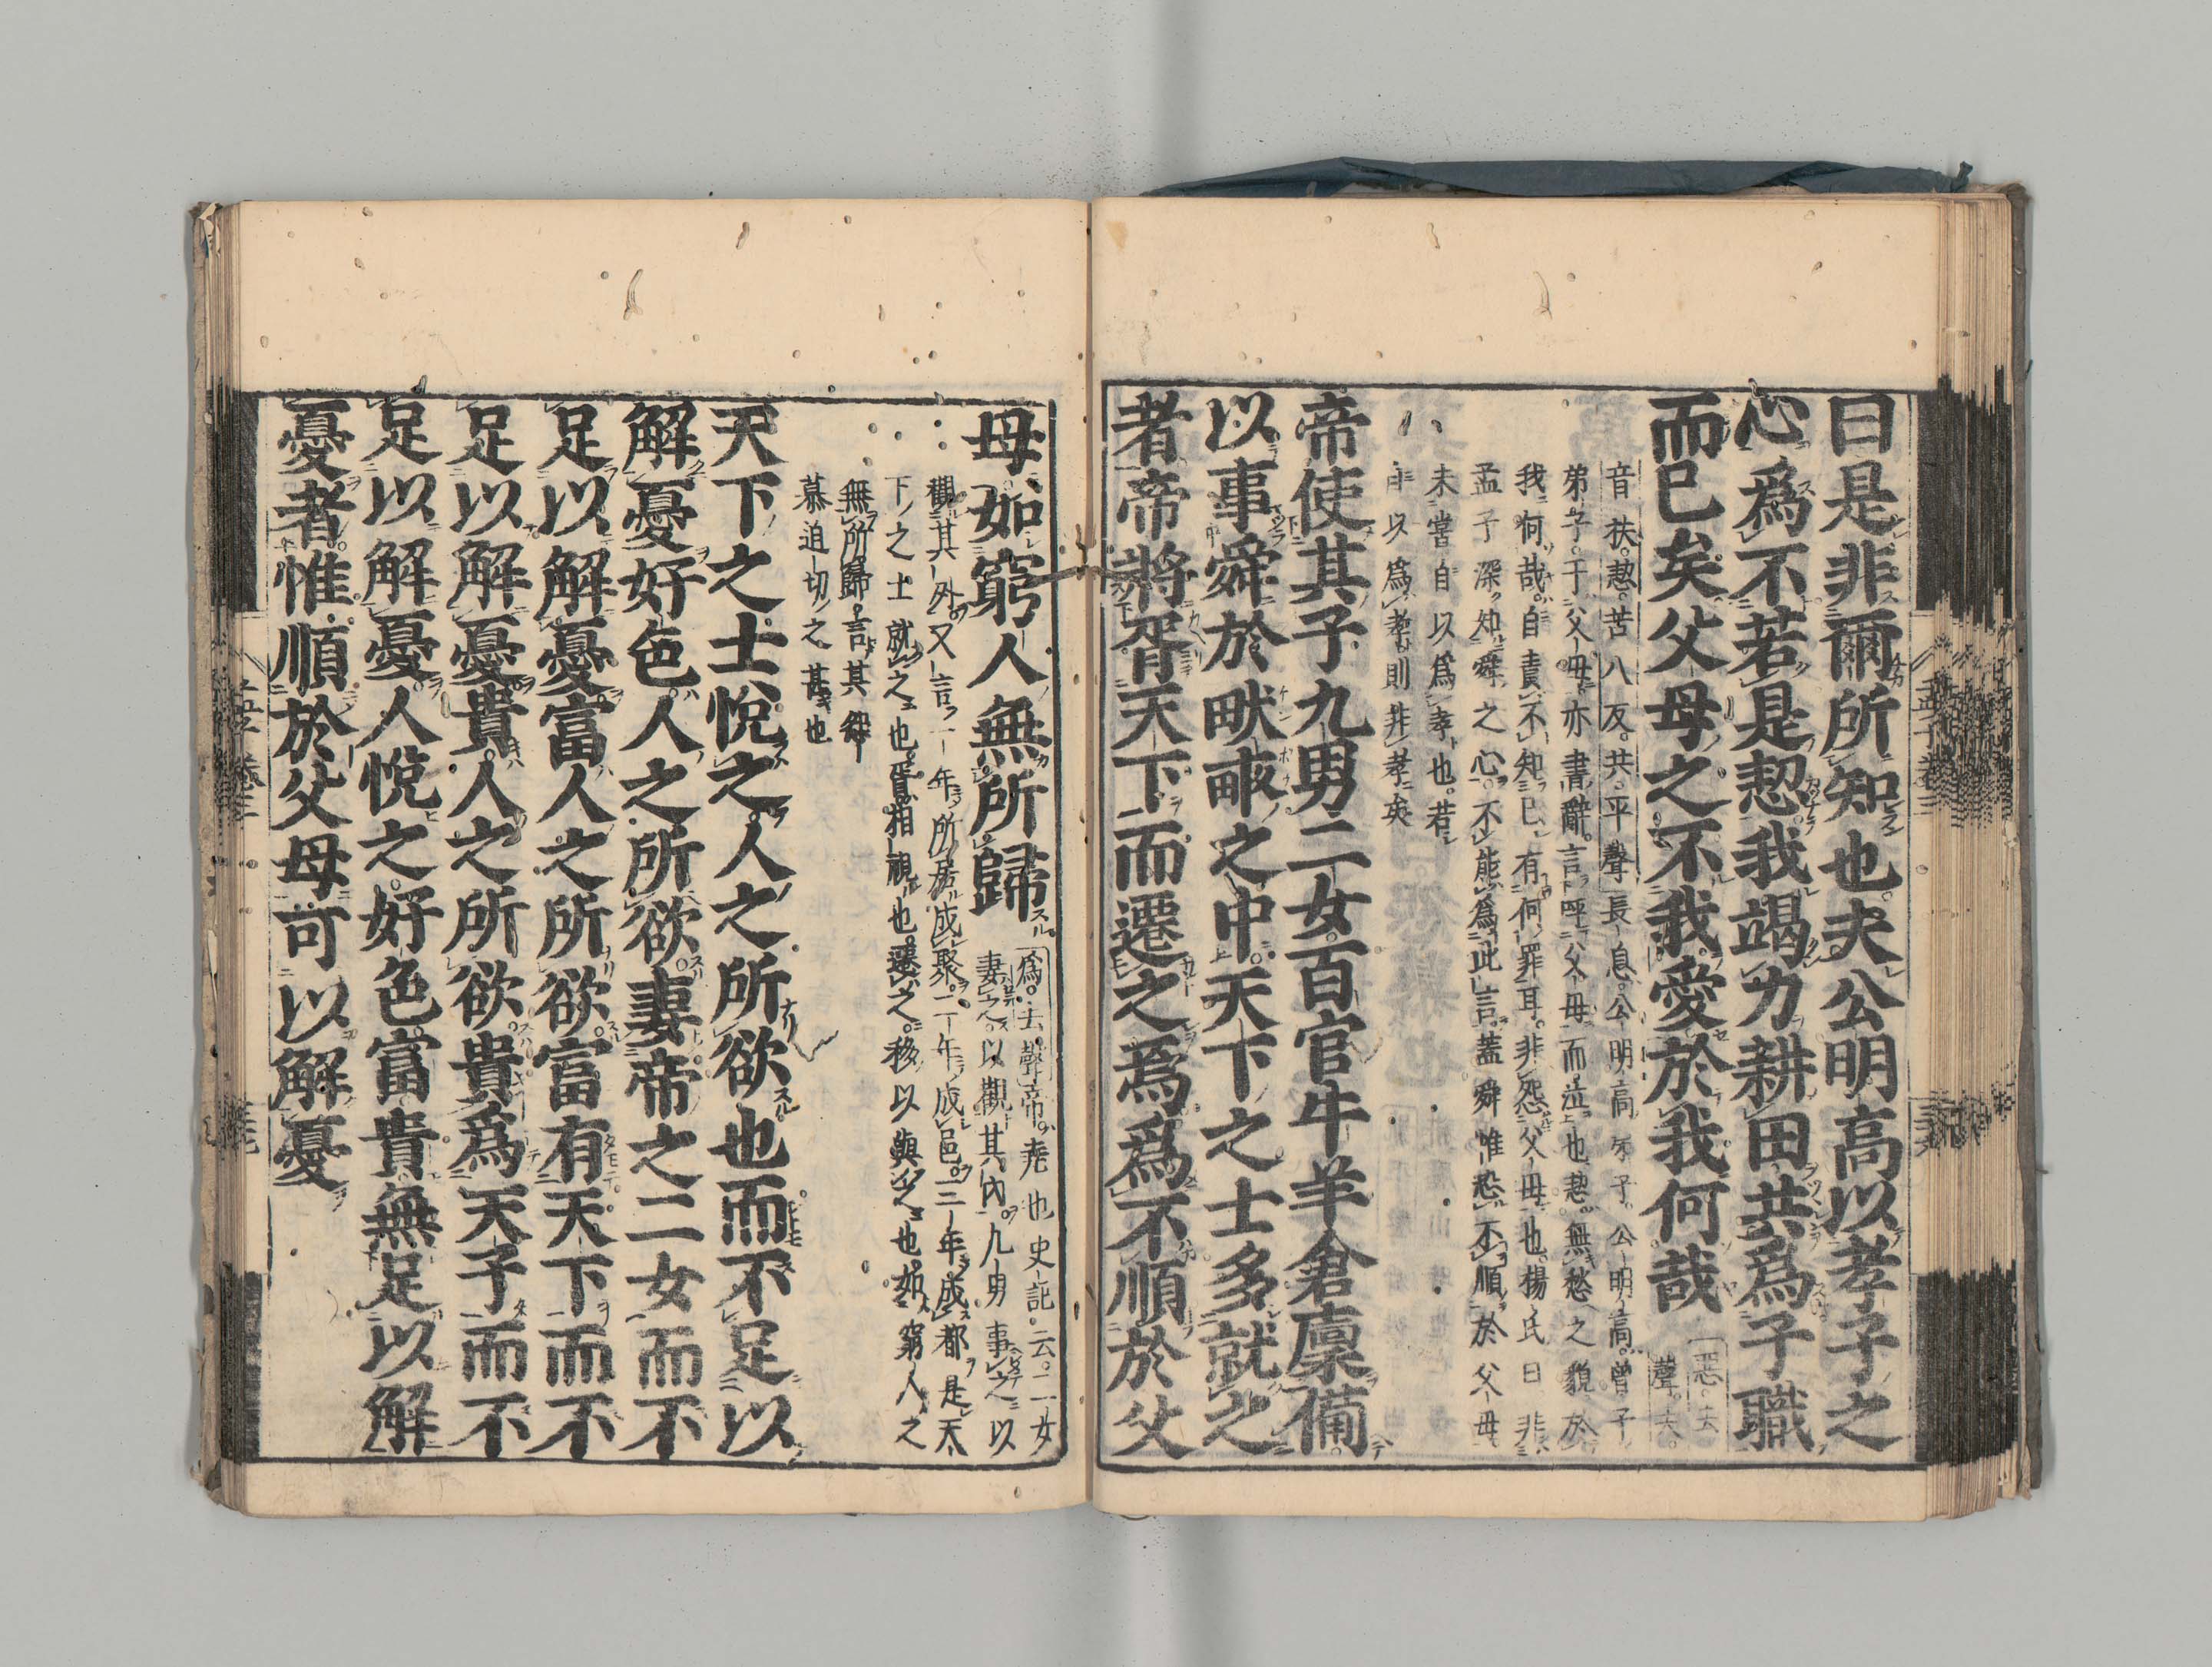 曰是非爾所知也夫公明高以孝子之
心爲不若是恝我竭力耕田共爲子職
而已矣父母之不我愛於我何哉
惡去
聲夫
音扶恝苦八反共平聲長息公明高弟子公明高曾子
弟子于父母亦書辭言呼父母而泣也恝無愁之貌於
我何哉自責不知已有何罪耳非怨父母也楊氏曰非
孟子深知舜之心不能爲此言蓋舜惟恐不順於父母
未嘗自以爲孝也若
自以爲孝則非孝矣
帝使其子九男二女百官牛羊倉廩備
以事舜於畎畝之中天下之士多就之
者帝將胥天下而遷之焉爲不順於父
母如窮人無所歸
爲去聲帝堯也史記云二女
妻之以觀其內九男事之以
觀其外又言一年所居成聚二年成邑三年成都是天
下之士就之也胥相視也遷之移以與之也如窮人之
無所歸言其怨
慕迫切之甚也
天下之士悅之人之所欲也而不足以
解憂好色人之所欲妻帝之二女而不
足以解憂富人之所欲富有天下而不
足以解憂貴人之所欲貴爲天子而不
足以解憂人悅之好色富貴無足以解
憂者惟順於父母可以解憂